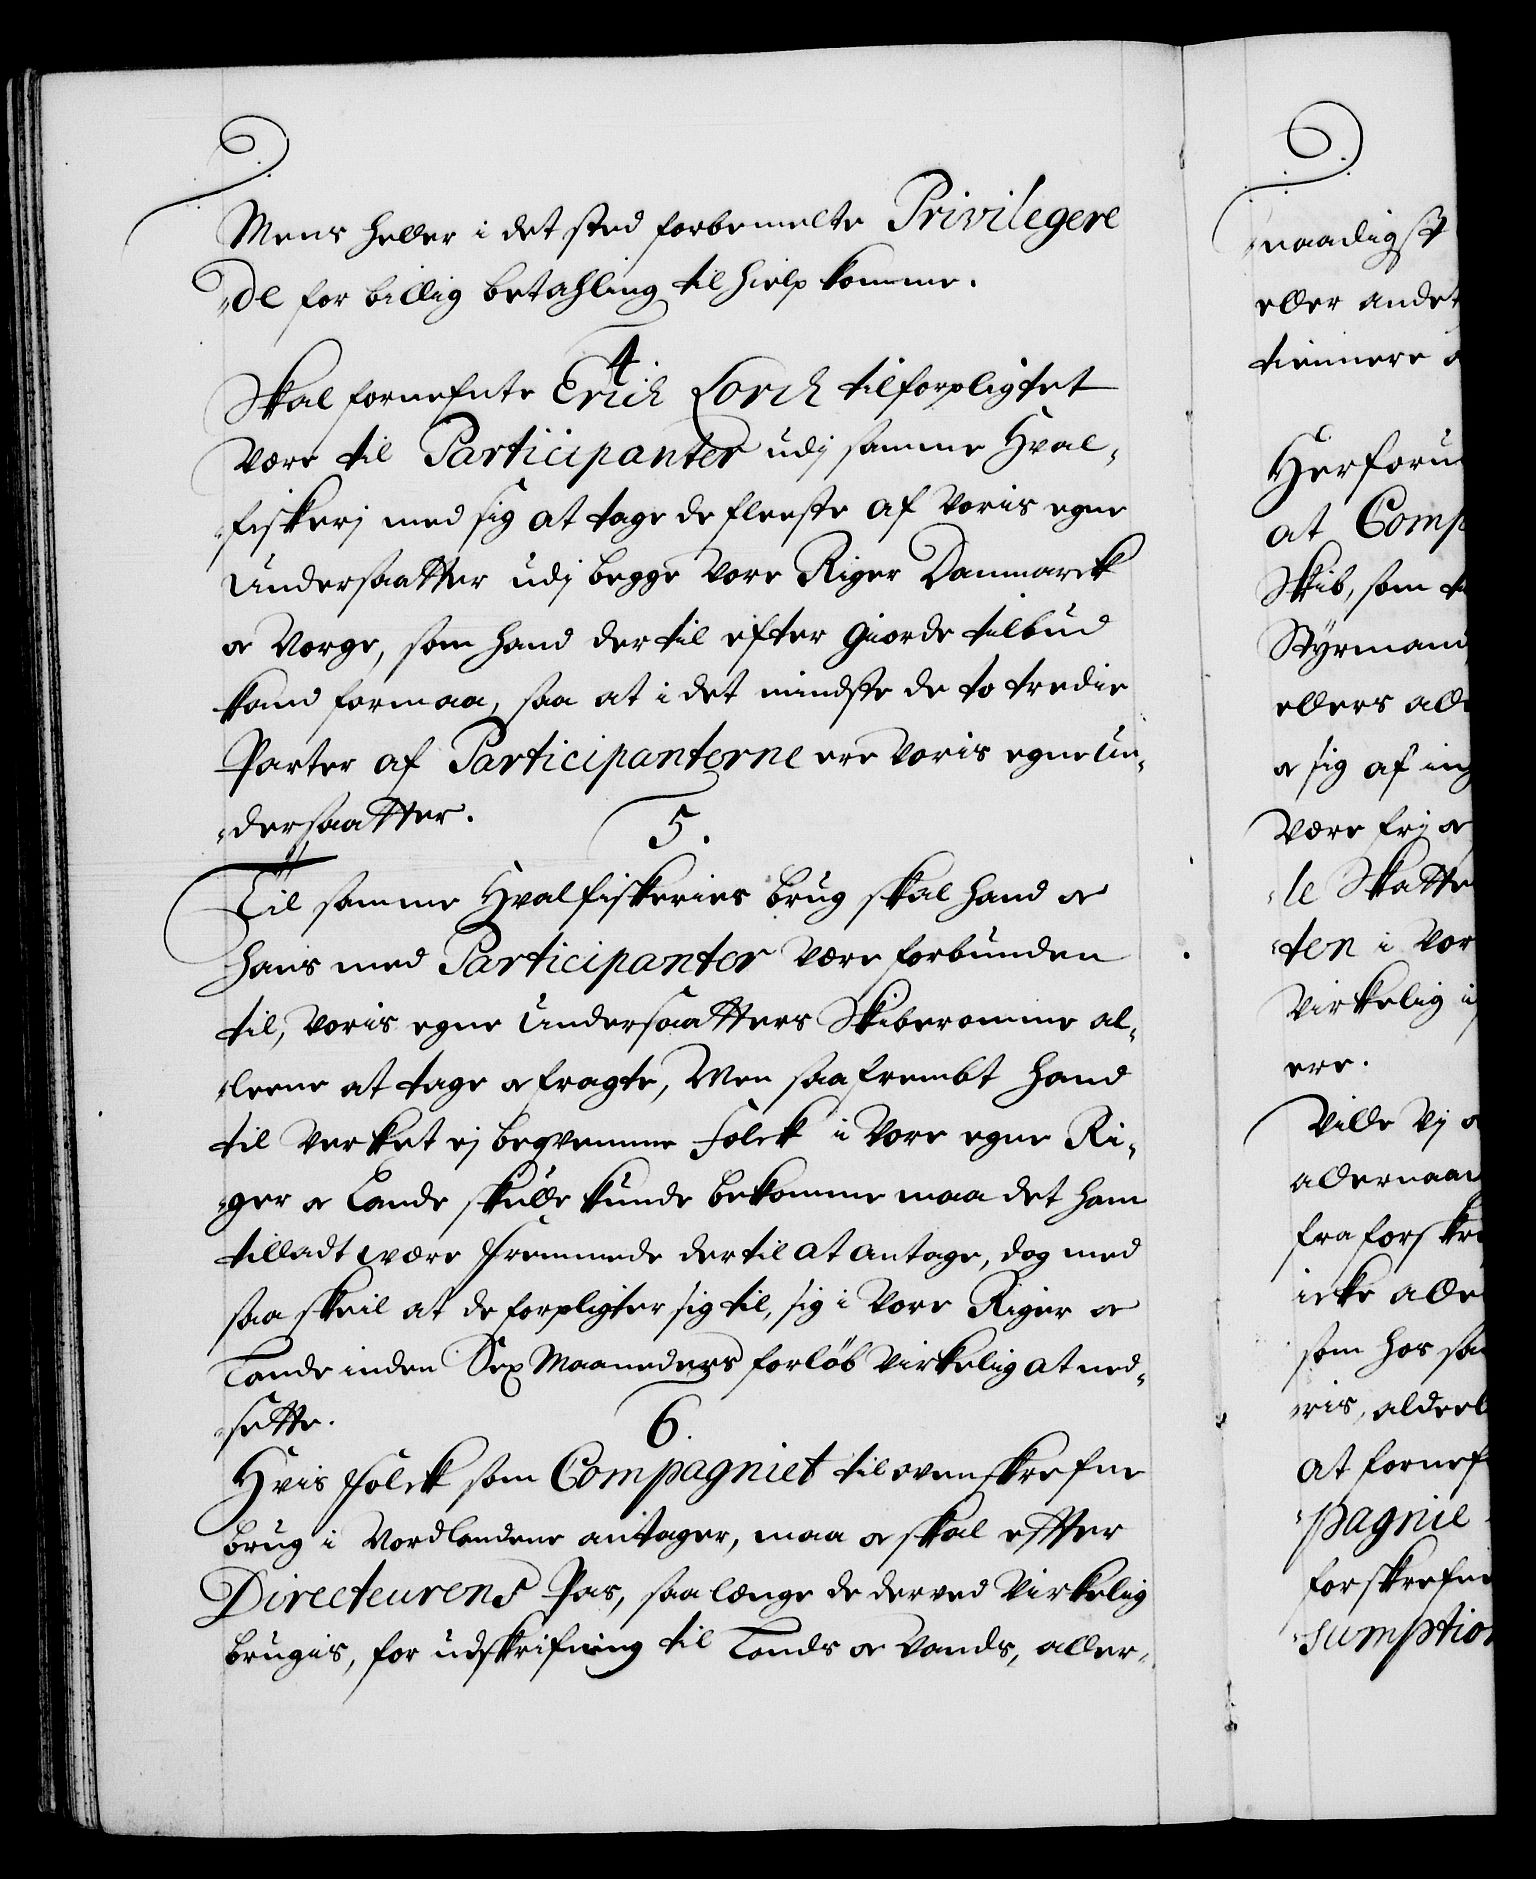 Mens heller i det sted forbemelte Privilegere
de for billig betahling til hielp komme.
4.
Skal fornefnte Erich Lorch tilforpligtet
være til Participanter udj samme Hval-
fiskerj med sig at tage de fleeste af Voris egne
Undersaatter udj begge Vore Riger Danmarck
og Norge, som hand dertil efter giorde tilbud
kand formaa, saa at i det mindste de to tredie
Parter af Participanterne ere Voris egne Un-
dersaatter.
5.
Til samme Hvalfiskeries brug skal hand og
hans med Participanter være forbunden
til, Voris egne Undersaatters Skiberomme al-
leene at tage og fragte, Men saafrembt hand
til Verket ej beqvemme Folck i Vore egne Ri-
ger og Lande skulle kunde bekomme maa det ham
tilladt være fremmede dertil at antage, dog med
saa skeil at de forpligter sig til, sig i Vore Riger og
Lande inden Sex Maaneders forløb virkelig at ned-
sette.
6.
Hvis Folck som Compagniet til ovenskrefne
brug i Nordlandene antager, maa og skal effter
Directeurens Pas, saa længe de derved virkelig
brugis, for udskrifning til Lands og Vands, aller-
naadigst
eller andet
tiennere
Herforu
at Comp
Skib, som
Styrmand
ellers all
og sig af ing
være frj og
le Skatte
ten i Vor
virkelig i
ere.
Ville Vj
allernaad
fra forskre
icke alle
som hos sa
ris, aldeel
at fornef
pagnie
forskrefne
sumption